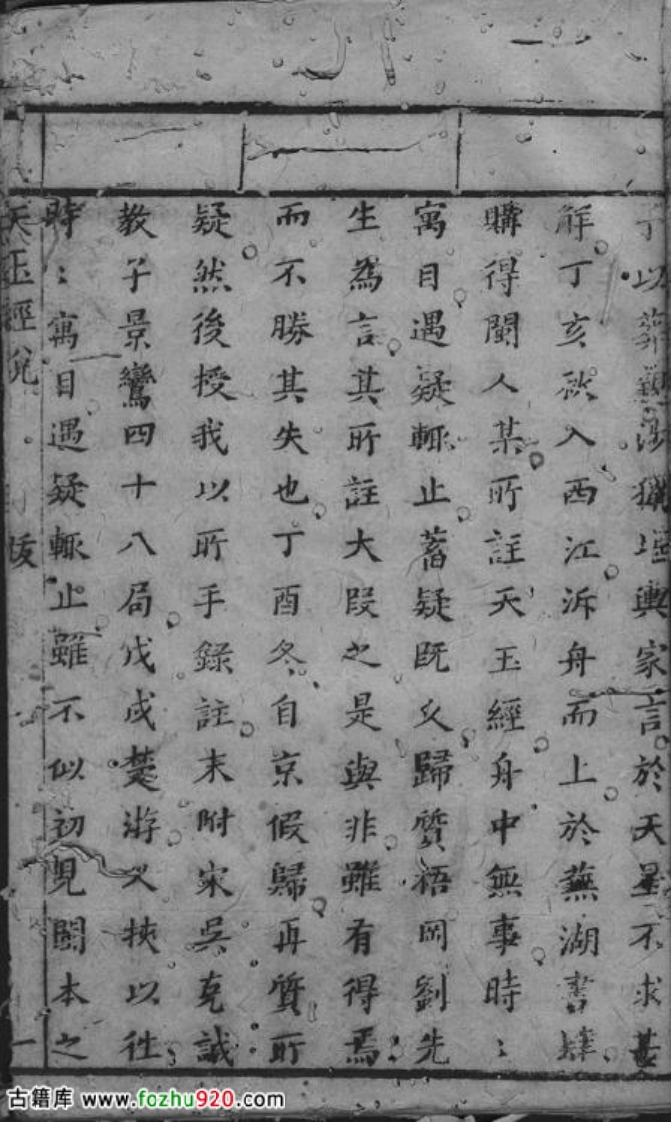 予以葬親涉獵堪輿家言於天星不求甚
解丁亥秋入西江泝舟而上於蕪湖書肆
購得閩人某所註天玉經舟中無事時〻
寓目遇疑輒止蓄疑既久歸質梧岡劉先
生為言其所註大段之是與非雖有得焉
而不勝其失也丁酉冬自京假歸再質所
疑然後授我以所手錄註末附宋吳克誠
教子景鸞四十八局戊戌楚游又挾以往
時〻寓目遇疑輒止雖不似初見閩本之
天玉經說 跋 一
古籍库 www.fozhu920.com